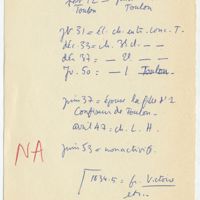 Toulon Toulon
N 31 = El. ch. entr. conc. T.
déc. 33 = ch. 2 cl. — —
déc 37 = — 2l. — —
Jv. 50 : — 1 Toulon.
juin 37 = épouse la fille N° 2
Confiseur de Toulon.
avril 47 = ch. L. H.
NA
juin 53 = nonactivité.
1834.5 = fr. Victoire
etc..